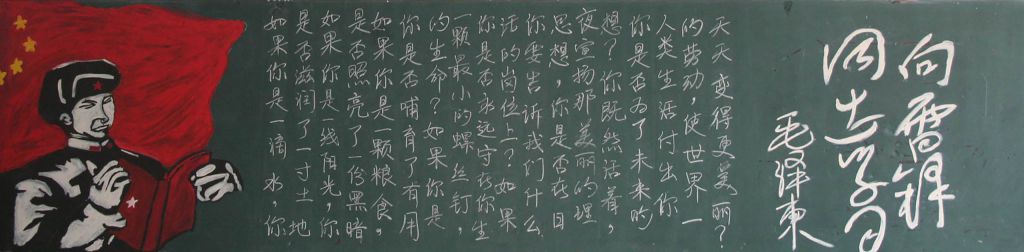 向雷锋
同志学习
毛泽東
如果你是一滴水,你
是否滋润了一寸土地
如果你是一线阳光,你
是否照亮了一份黑暗
如果你是一颗粮食,
你是否哺育了有用
的生命?如果你是
一颗最小的螺丝钉,
你是否永远守在你生
活的岗位上?如果
你要告诉我们什么
思想,你是否在日
夜宣扬那美丽的理
想?你既然活着,
你是否为了未来的
人类生活付出你
的劳动,使世界一
天天变得更美丽?